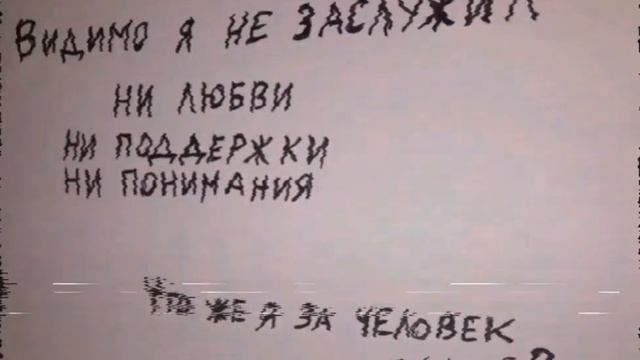 Видимо я не заслужил
ни любви
ни поддержки
ни понимания
же я за человек